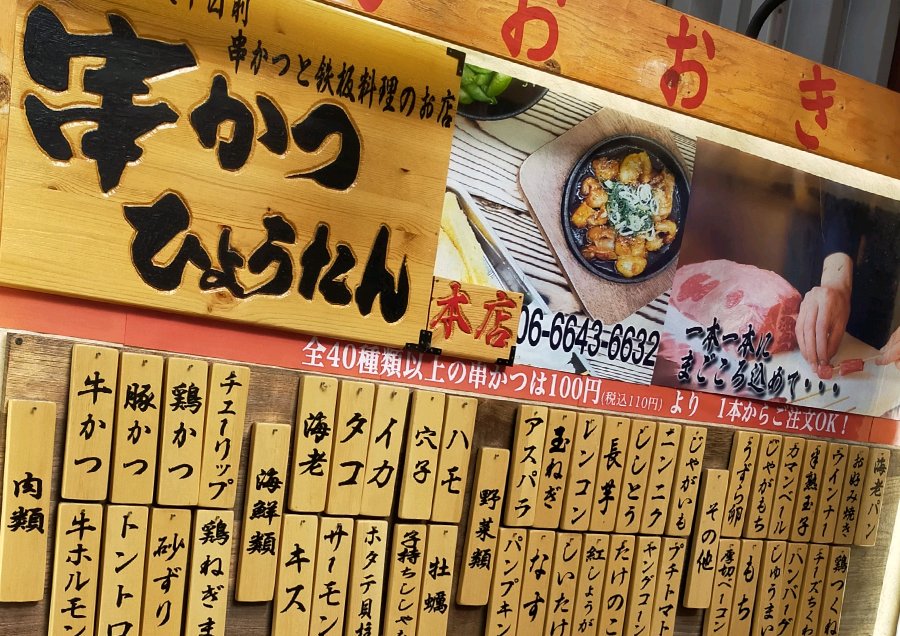 串かつと鉄板料理のお店
串かつ
ひょうたん
本店
おおき
06-6643-6632
一本一本に
まごころ込めて・・・
全40種類以上の串かつは100円(税込110円)より 1本からご注文OK!
肉類
牛かつ
豚かつ
鶏かつ
チューリップ
牛ホルモン
トントロ
砂ずり
鶏ねぎま
海鮮類
海老
タコ
イカ
穴子
ハモ
キス
サーモン
ホタテ貝柱
子持ちししゃも
牡蠣
野菜類
アスパラ
玉ねぎ
レンコン
長芋
ししとう
ニンニク
じゃがいも
パンプキン
なす
しいたけ
紅しょうが
たけのこ
ヤングコーン
プチトマト
その他
うずら卵
じゃがもち
カマンベール
半熟玉子
ウインナー
お好み焼き
海老パン
厚切ベーコン
もち
しゅうまい
ハンバーグ
チーズちくわ
鶏つくね